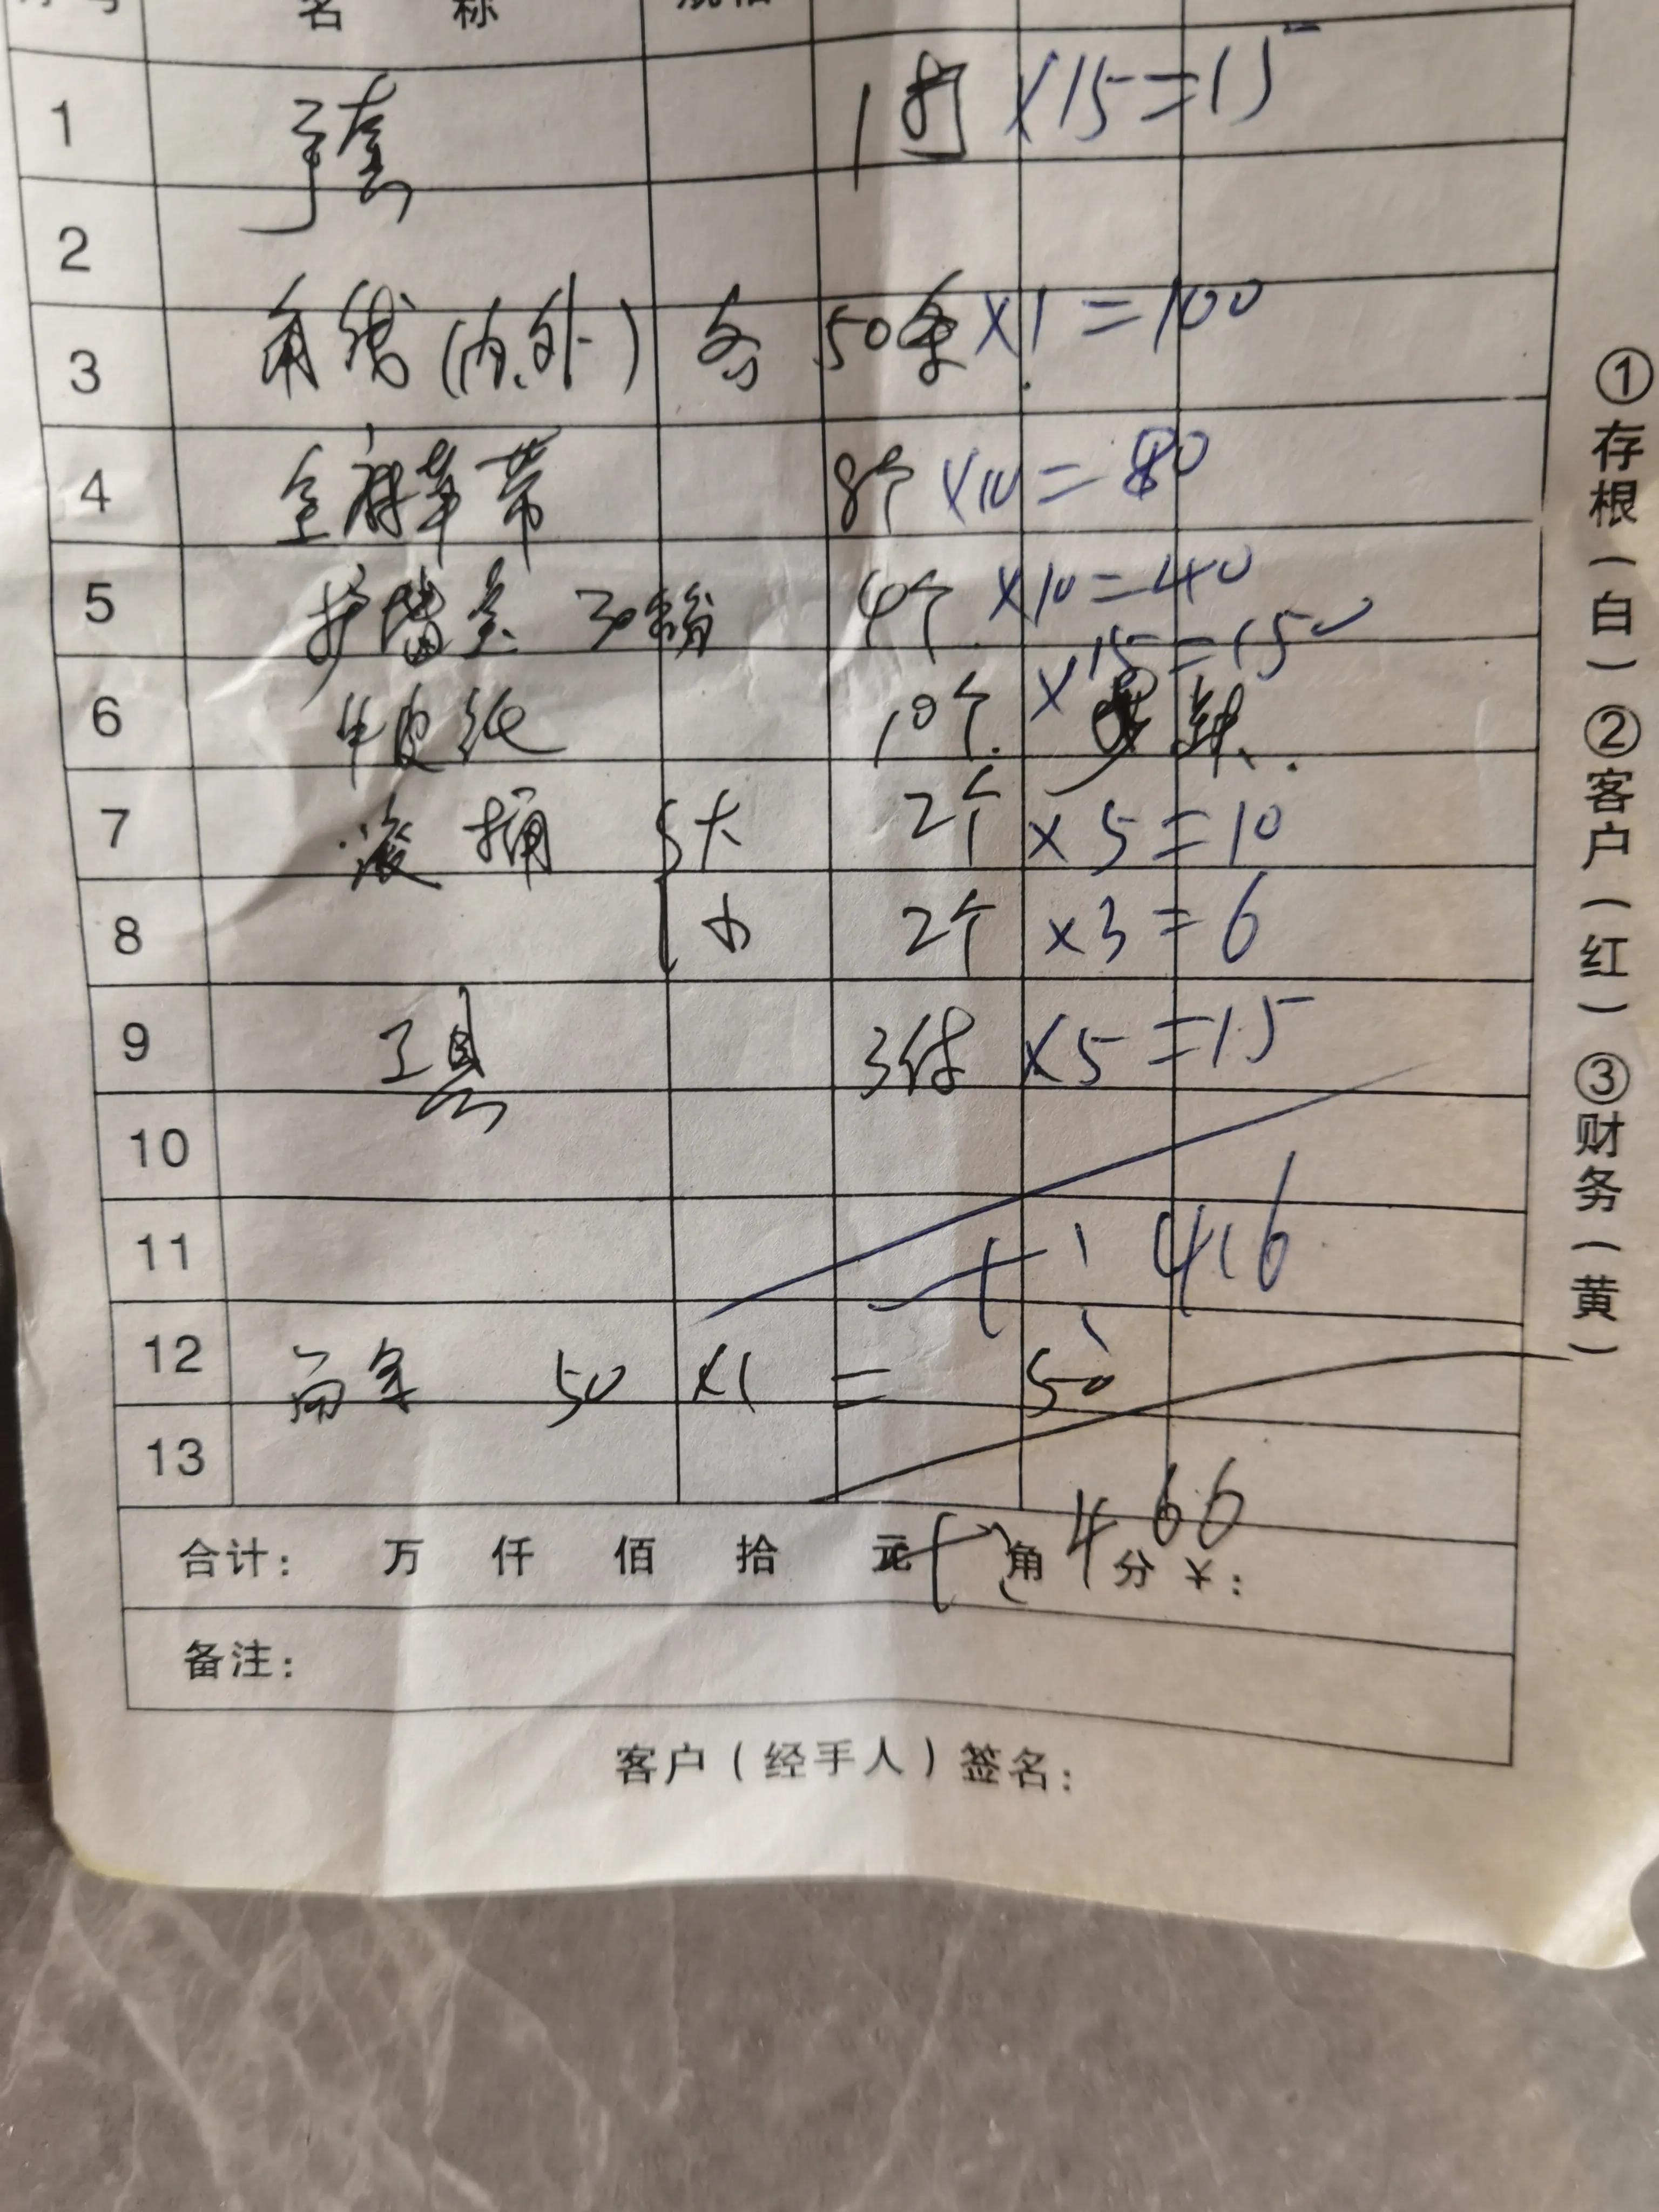 名 称
1 手套 1打 ×15=15
2
3 角线(内.外) 各 50条 ×1=100
4 全麻草带 8个 ×10=80
5 护墙 4个 ×10=40
6 牛皮纸 10个. ×15=150
7 滚桶 大 2个 ×5=10
8 小 2个 ×3=6
9 工具 3件 ×5=15
10
11 计 416
12 50 ×1 = 50
13
合计: 万 仟 佰 拾 元 角 分 ¥: 计 466
备注:
客户(经手人)签名:
①存根(白)②客户(红)③财务(黄)